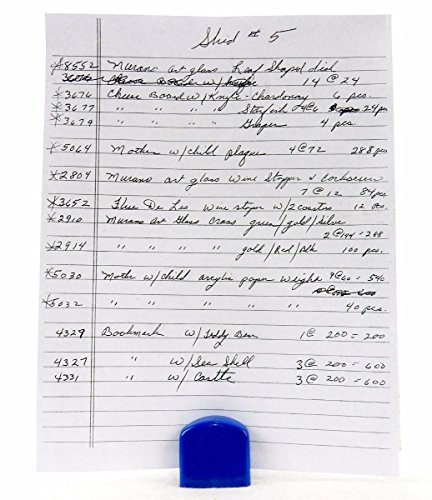 Shed # 5
*8552 Murano art glass Leaf Shaped dish
14 @ 24
*3676 Cheese Board w/Knife - Chardonnay 6 pcs.
*3677 " " " " Starfish 4@6 24 pcs
*3679 " " " " Grapes 4 pcs.
*5064 Mother w/child plaque 4@72 288 pcs
*2804 Murano art glass Wine Stopper & corkscrew
7 @ 12 84 pcs
*3652 Fleur De Lis wine stoper w/2 coasters 12 pcs.
*2910 Murano Art Glass Cross green/gold/silver
2 @ 144 = 288
*2914 " " " " gold/Red/blk 100 pcs.
*5030 Mother w/child acrylic paper weight 9@60 = 540
*5032 " " " " " 40 pcs.
4329 Bookmark w/Teddy Bear 1@ 200 = 200
4327 " w/Sea Shell 3@ 200 = 600
4331 " w/Castle 3@ 200 = 600